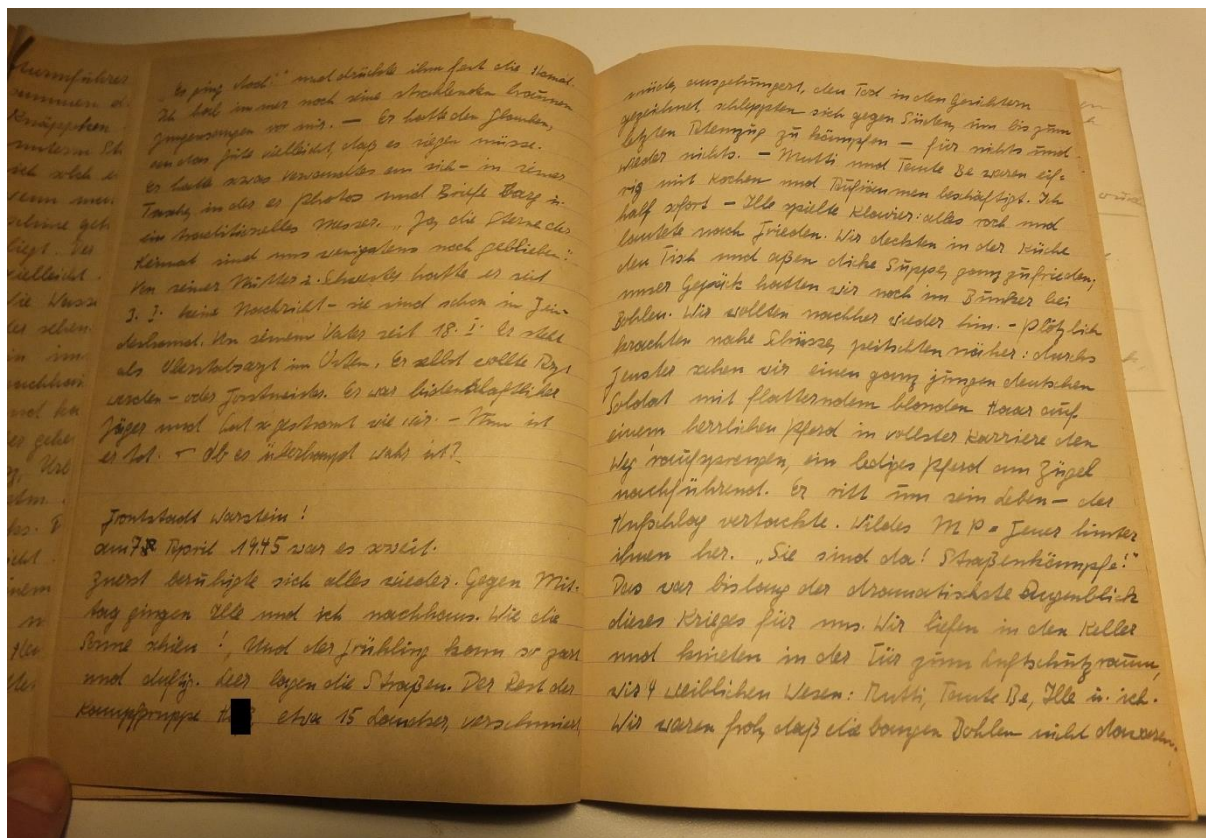 „Es ging doch!" und drückte ihm fest die Hand.
Ich hab immer noch seine strahlenden braunen
Jungensaugen vor mir. — Er hatte den Glauben,
an das Gute vielleicht, daß es siegen müsse.
Er hatte etwas Verwandtes an sich – in seiner
Tasche, in der er Photos und Briefe barg u.
ein traditionelles Messer. „Ja, die Sterne der
Heimat sind uns wenigstens noch geblieben."
Von seiner Mutter u. Schwester hatte er seit
3. I. keine Nachricht – sie sind schon in Fein-
deshand. Von seinem Vater seit 18. I. Er steht
als Oberstabsarzt im Osten. Er selbst wollte Arzt
werden – oder Forstmeister. Er war leidenschaftlicher
Jäger und gestromt wie wir. – Nun ist
er tot. – Ob es überhaupt wahr ist?
Frontstadt Warstein!
am 7. April 1945 war es soweit.
Zuerst beruhigte sich alles wieder. Gegen Mit-
tag gingen Ille und ich nachhaus. Wie die
Sonne schien! Und der Frühling kam so zart
und duftig. Leer lagen die Straßen. Der Rest der
Kampfgruppe etwa 15 Landser, verschmiert,
müde, ausgehungert, den Tod in den Gesichtern
gezeichnet schleppten sich gegen Süden, um bis zum
letzten Atemzug zu kämpfen – für nichts und
wieder nichts. – Mutti und Tante Be waren eif-
rig mit Kochen und Aufräumen beschäftigt. Ich
half sofort – Ille spielte Klavier: alles roch und
lautete nach Frieden. Wir deckten in der Küche
den Tisch und aßen dicke Suppe, ganz zufrieden;
unser Gepäck hatten wir noch im Bunker bei
Bohlen. Wir wollten nachher wieder hin. – Plötzlich
krachten nahe Schüsse, peitschten näher: durchs
Fenster sehen wir einen ganz jungen deutschen
Soldat mit flatterndem blonden Haar auf
einem herrlichen Pferd in vollster Karriere den
Weg 'raufsprengen, ein lediges Pferd am Zügel
nachführend. Er ritt um sein Leben – der
Hufschlag vertackte. Wildes MP-Feuer hinter
ihnen her. „Sie sind da! Straßenkämpfe!"
Das war bislang der dramatischste Augenblick
dieses Krieges für uns. Wir liefen in den Keller
und knieten in der Tür zum Luftschutzraum,
wir 4 weiblichen Wesen: Mutti, Tante Be, Ille u. ich.
Wir waren froh, daß die bangen Bohlen nicht dawaren.